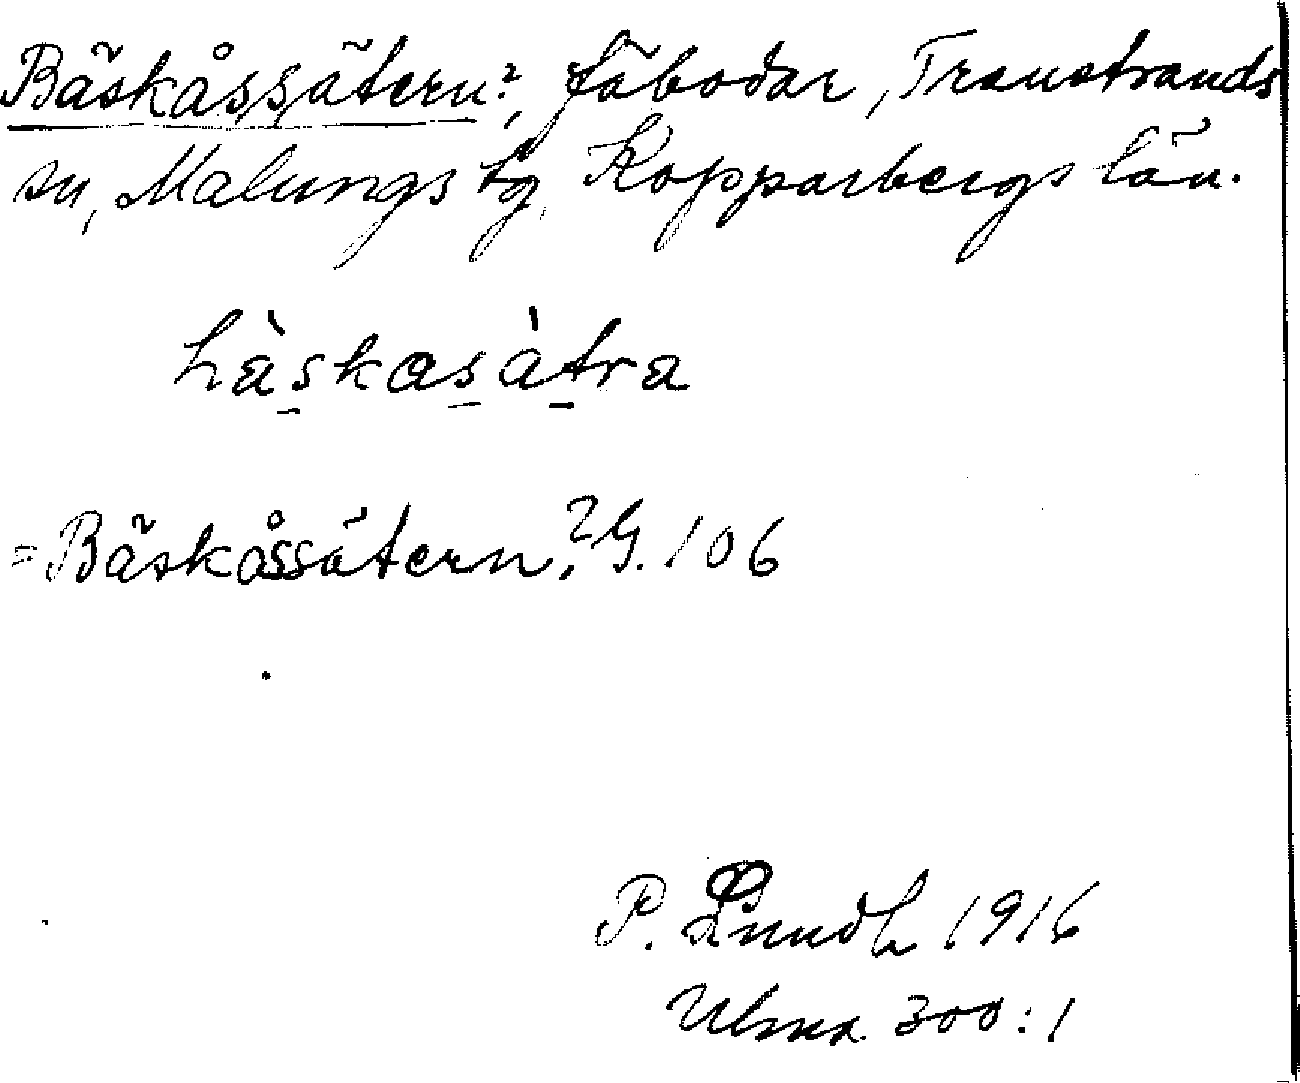 Bäskåssätern?, fäbodar, Transtrands
sn, Malungs tg, Kopparbergs län.
bàskasàtra
=Bäskåssätern,? G. 106
P. Lundh 1916
Ulma. 300:1